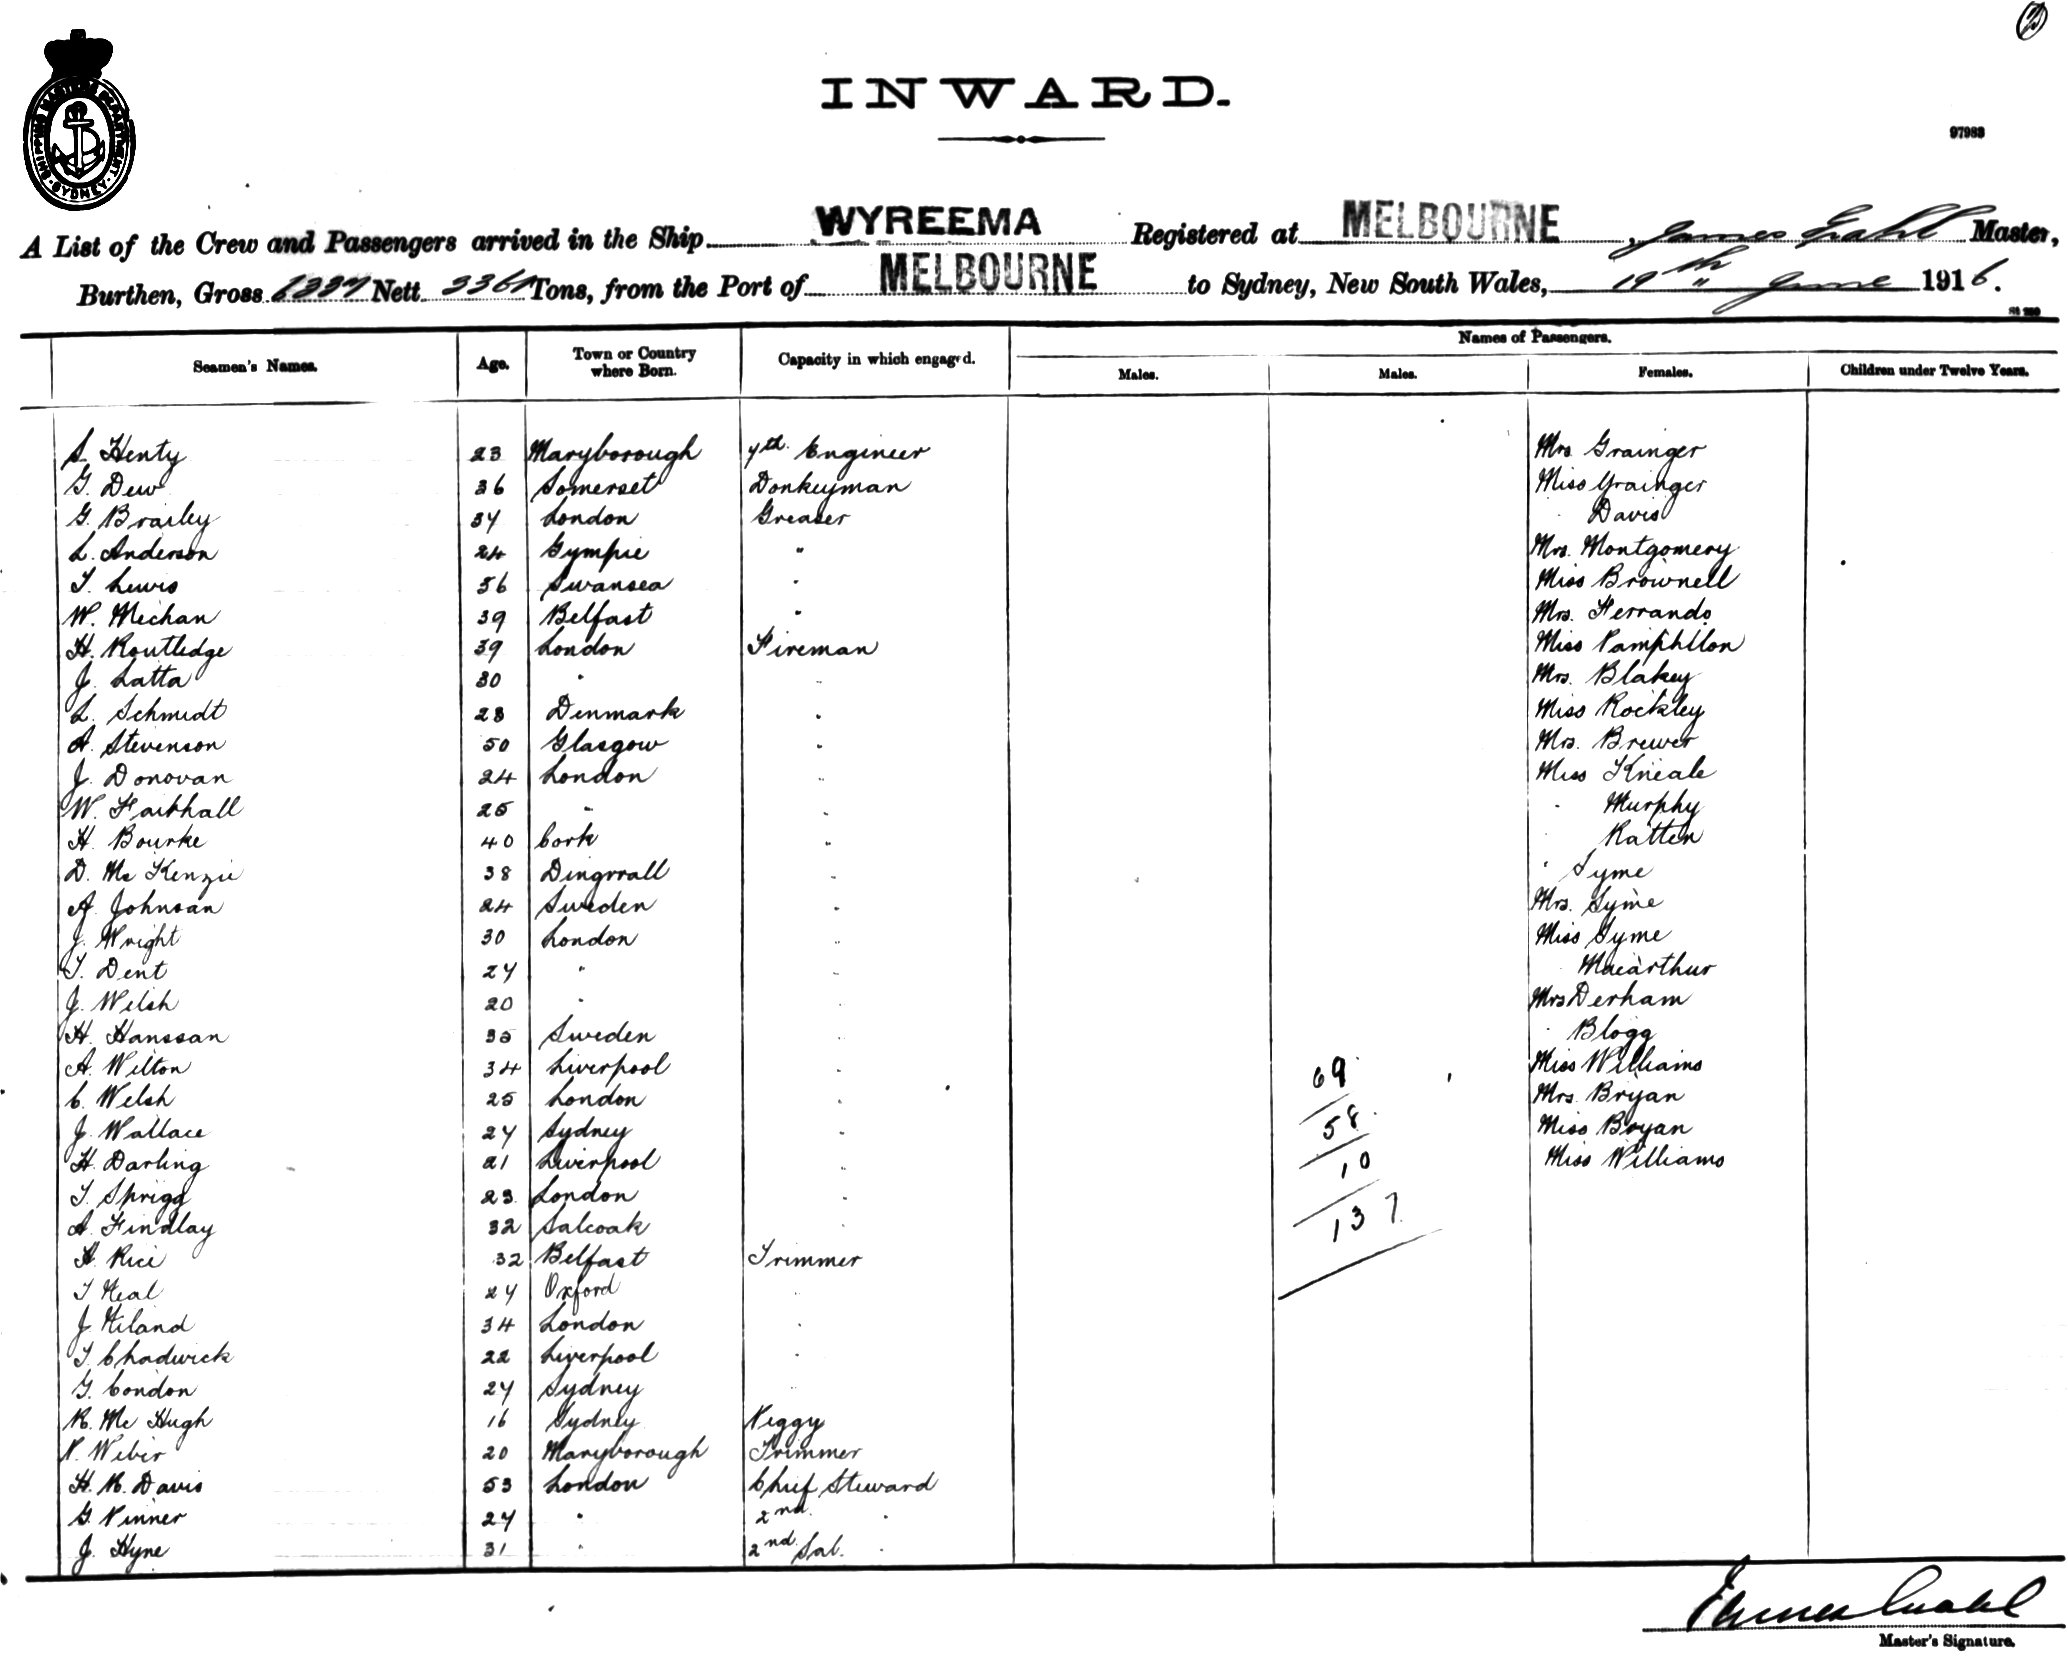 INWARD.
97983
SHIPPING MASTERS DEPARTMENT · SYDNEY ·
A List of the Crew and Passengers arrived in the Ship WYREEMA Registered at MELBOURNE, James Grahl Master,
Burthen, Gross 6337 Nett 3361 Tons, from the Port of MELBOURNE to Sydney, New South Wales, 19th June 1916.
Names of Passengers.
Seamen's Names. Age. Town or Country where Born. Capacity in which engaged. Males. Males. Females. Children under Twelve Years.
S. Henty 23 Maryborough 7th Engineer Mrs Grainger
G. Dew 36 Somerset Donkeyman Miss Grainger
G. Brailey 37 London Greaser " Davis
L. Anderson 24 Gympie " Mrs. Montgomery
T. Lewis 56 Swansea " Miss Brownell
W. Mechan 39 Belfast " Mrs. Ferrando
H. Routledge 39 London Fireman Miss Pamphllon
J. Latta 30 " " Mrs. Blakey
L. Schmidt 28 Denmark " Miss Rockley
A. Stevenson 50 Glasgow " Mrs. Brewer
J. Donovan 24 London " Miss Kneale
W. Fairhall 25 " " " Murphy
H. Bourke 40 Cork " " Ratten
D. Mc Kenzie 38 Dingvrall " " Syme
A. Johnsan 24 Sweden " Mrs. Syme
J. Wright 30 London " Miss Syme
T. Dent 27 " " " Macarthur
J. Welsh 20 " " Mrs Derham
H. Hanssan 35 Sweden " " Blogg
A. Wilton 34 Liverpool " 69 Miss Williams
C. Welsh 25 London " Mrs. Bryan
J. Wallace 27 Sydney " 58 Miss Bryan
H. Darling 21 Liverpool " 10 Miss Williams
T. Sprigg 23 London "
A. Findlay 32 Salcoak " 137
H. Rice 32 Belfast Trimmer
T Neal 27 Oxford "
J. Hiland 34 London "
T. Chadwick 22 Liverpool "
G. Condon 27 Sydney "
R. Mc Hugh 16 Sydney Peggy
P. Weber 20 Maryborough Trimmer
H. R. Davis 53 London Chief Steward
G. Pinner 27 " 2nd "
J. Hyne 31 " 2nd Sal. "
James Grahl
Master's Signature.